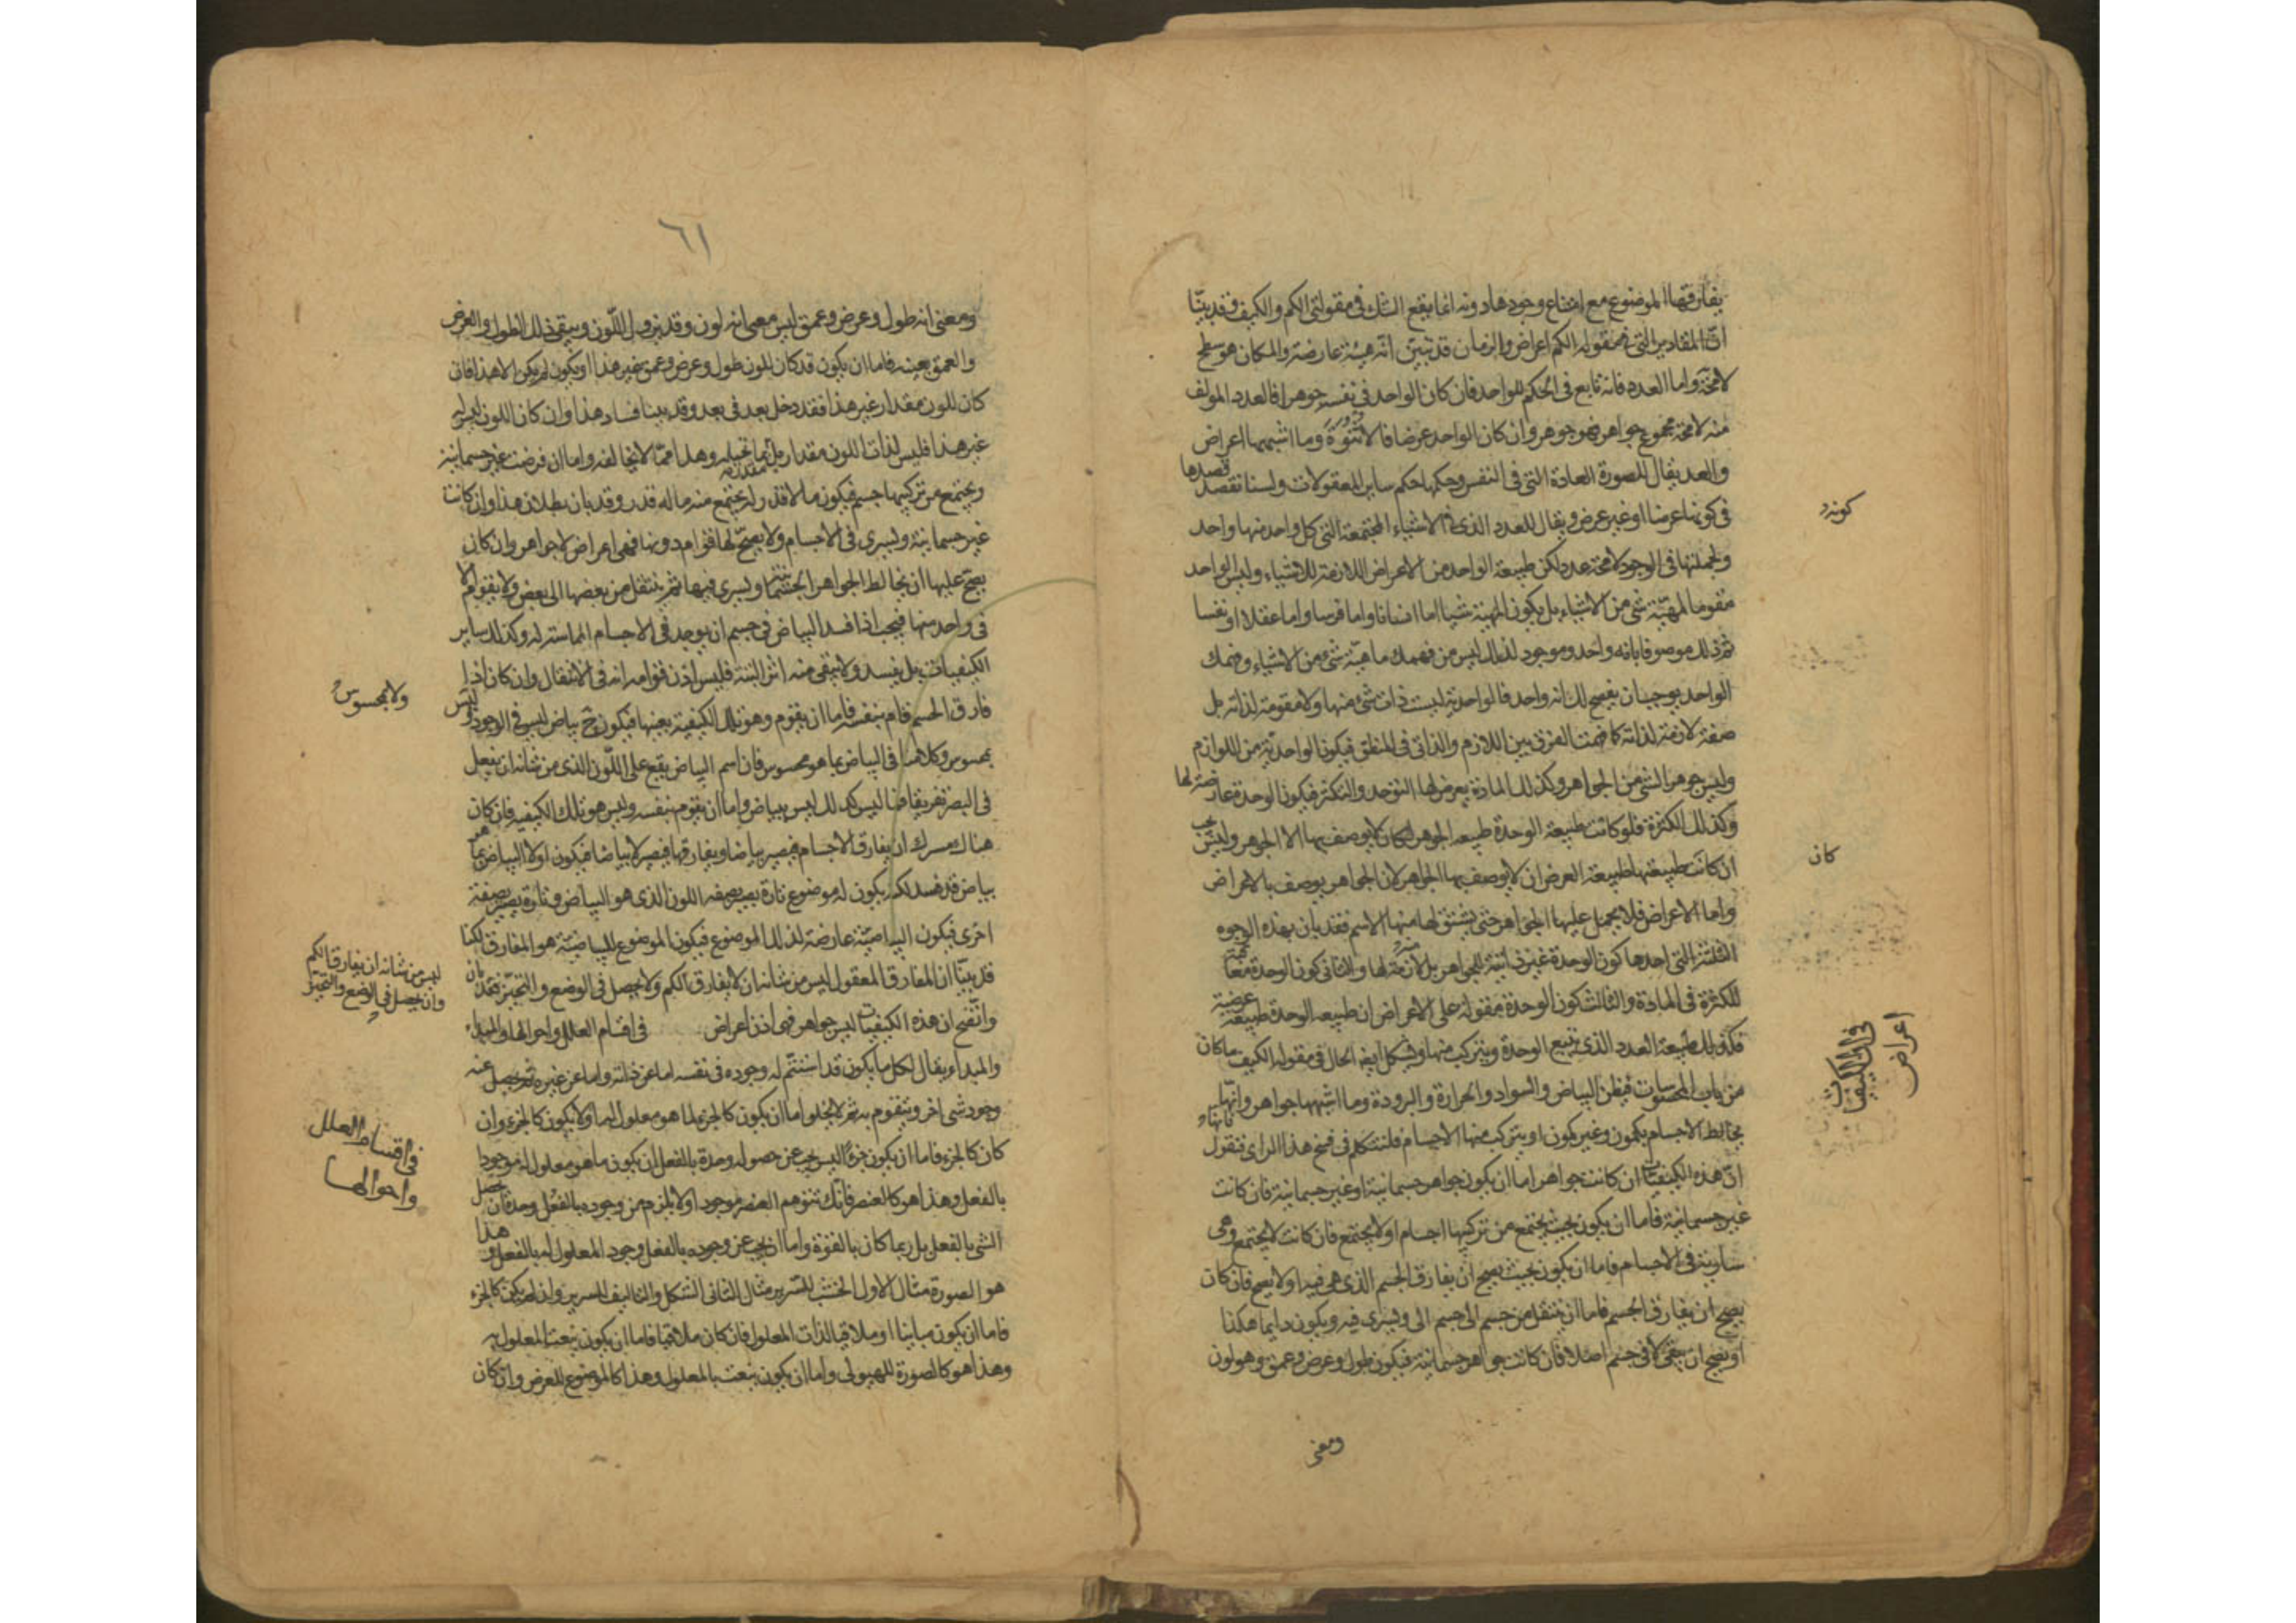 يفارقها الموضوع مع امتناع وجودها دونه انما يقع الشك في مقولتي الكم والكيف فقد بينّا
انّ المقادير التي في مقوله الكم اعراض والزمان قد تبيّن انّه هيئة عارضة والمكان هو سطح
لامحة واما العدد فانه تابع في الحكم للواحد فان كان الواحد في نفسه جوهرا فالعدد المولف
منه لامحة مجموع جواهر فهو جوهر وان كان الواحد عرضا فالاثنوة وما اشبهها اعراض
والعدد يقال للصورة العادة التي في النفس وحكمها حكم ساير المعقولات ولسنا نقصد قصدها
في كونها عرضا او غير عرض ويقال للعدد الذي في الاشياء المجتمعة التي كل واحد منها واحد
ولجملتها في الوجود لامحة عدد لكن طبيعة الواحد من الاعراض اللازمة للاشياء وليس الواحد
مقوما لمهيّة شي من الاشياء بل يكون المهية شيا اما انسانا واما فرسا واما عقلا او نفسا
ثم ذلك موصوفا بانه واحد وموجود لذلك ليس من فهمك ماهية شي من الاشياء وفهمك
الواحد يوجب ان يصح لك انه واحد فالواحدية ليست ذات شي منها ولا مقومة لذاته بل
صفة لازمة لذاته كما فهمت الفرق بين اللازم والذاتي في المنطق فيكون الواحديّة من اللوازم
وليس جوهرا لشي من الجواهر وكذلك المادة يعرض لها التوحد والتكثر فيكون الوحدة عارضة لها
وكذلك الكثرة فلو كانت طبيعة الوحدة طبيعه الجوهر لكان لا يوصف بها الا الجوهر وليس يجب
ان كانت طبيعتها طبيعة العرض ان لا يوصف بها الجواهر لان الجواهر يوصف بالاعراض
واما الاعراض فلا يحمل عليها الجواهر حتى يشتق لها منها الاسم فقد بان بهذه الوجوه
الثلثة التي احدها كون الوحدة غير ذاتية للجواهر بل لازمة لها والثاني كون الوحدة معاقبة
للكثرة في المادة والثالث كون الوحدة مقوله على الاعراض ان طبيعه الوحدة طبيعة عرضية
فكذلك طبيعة العدد الذي يتبع الوحدة ويتركب منها ويشكل ايضا الحال في مقوله الكيف ما كان
من باب المحسوسات فيظن البياض والسواد والحرارة والبرودة وما اشبهها جواهر وانها
يخالط الاجسام بكمون وغير كمون او يتركب منها الاجسام فلنتكلم في فسخ هذا الراي فنقول
انّ هذه الكيفيات ان كانت جواهر اما ان يكون جواهر جسمانية او غير جسمانية فان كانت
غير جسمانية فاما ان يكون بحيث يجتمع من تركيبها اجسام او لا يجتمع فان كانت لا يجتمع وهي
سارية في الاجسام فاما ان يكون بحيث يصح ان يفارق الجسم الذي هي فيه او لا يصح فان كان
يصح ان يفارق الجسم فاما ان ينتقل من جسم الى جسم ويسري فيه ويكون دايما هكذا
او يصح ان يبقى لا في جسم اصلا فان كانت جواهر جسمانية فيكون طول وعرض وعمق وهو لون
ومعنى
كونه
كان
في ان الكيفيات
اعراض
٦١
ومعنى انه طول وعرض وعمق ليس معنى انه لون وقد يزول اللّون ويبقى ذلك الطول والعرض
والعمق بعينه فاما ان يكون قد كان للون طول وعرض وعمق غير هذا او يكون لم يكن الا هذا فان
كان للون مقدار غير هذا فقد دخل بعد في بعد وقد بينا فساد هذا وان كان اللون ليس له
غير هذا فليس لذات اللون مقدار بل انما تحيله وهذا ممّا لا يخالفه واما ان فرضت غير جسمانية
ويجتمع من تركيبها جسم فيكون ما لا قدر له يجتمع منه ما له قدر وقد بان بطلان هذا وان كانت
غير جسمانية ويسري في الاجسام ولا يصح لها قوام دونها فهي اعراض لا جواهر وان كان
يصح عليها ان يخالط الجواهر الجسمانية ويسري فيها ثم ينتقل من بعضها الى بعض ولا يقوم الا
في واحد منها فيجب اذا فسد البياض في جسم ان يوجد في الاجسام المماسة له وكذلك ساير
الكيفيات بل يفسد ولا يبقى منه اثر البتة فليس اذن قوامه انه في الانتقال وان كان اذا
فارق الجسم قام بنفسه فاما ان يقوم وهو تلك الكيفية بعينها فيكون ح بياض ليس في الوجود وليس
بمحسوس وكلامنا في البياض بما هو محسوس فان اسم البياض يقع على اللّون الذي من شانه ان يفعل
في البصر تفريقا فما ليس كذلك ليس ببياض واما ان يقوم بنفسه وليس هو تلك الكيفيه فان كان
هناك مشترك ان يفارق الاجسام فيصير بياضا ويفارقها فيصير لا بياضا فيكون اولا البياض بما هو
بياض قد فسد لكنه يكون له موضوع تارة يصير بصفه اللون الذي هو البياض وتارة يصير بصفة
اخرى فيكون البياضيّة عارضة لذلك الموضوع فيكون الموضوع للبياضيّة هو المفارق لكنا
قد بيّنا ان المفارق المعقول ليس من شانه ان لا يفارق الكم ولا يحصل في الوضع والتحيّز فقد بان
واتّضح ان هذه الكيفيات ليس جواهر فهي اذن اعراض في اقسام العلل واحوالها والمبداء
والمبداء يقال لكل ما يكون قد استتم له وجوده في نفسه اما عن ذاته واما عن غيره ثم يحصل عنه
وجود شي اخر ويتقوم به ثم لا يخلوا اما ان يكون كالجزء لما هو معلول له او لا يكون كالجزء وان
كان كالجزء فاما ان يكون جزءا ليس يجب عن حصوله وحده بالفعل ان يكون ما هو معلول له موجودا
بالفعل وهذا هو كالعنصر فانّك تتوهم العنصر موجودا ولا يلزم من وجوده بالفعل وحده ان يحصل
الشي بالفعل بل ربما كان بالقوة واما ان يجب عن وجوده بالفعل وجود المعلول له بالفعل وهذا
هو الصورة مثال الاول الخشب للسرير مثال الثاني الشكل والتاليف للسرير وان لم يكن كالجزء
فاما ان يكون مباينا او ملاقيا لذات المعلول فان كان ملاقيا فاما ان يكون ينعت المعلول به
وهذا هو كالصورة للهيولي واما ان يكون ينعت بالمعلول وهذا كالموضوع للعرض وان كان
ولا بمحسوس
ليس من شانه ان يفارق الكم
وان يحصل في الوضع والتحيّز
في اقسام العلل
واحوالها